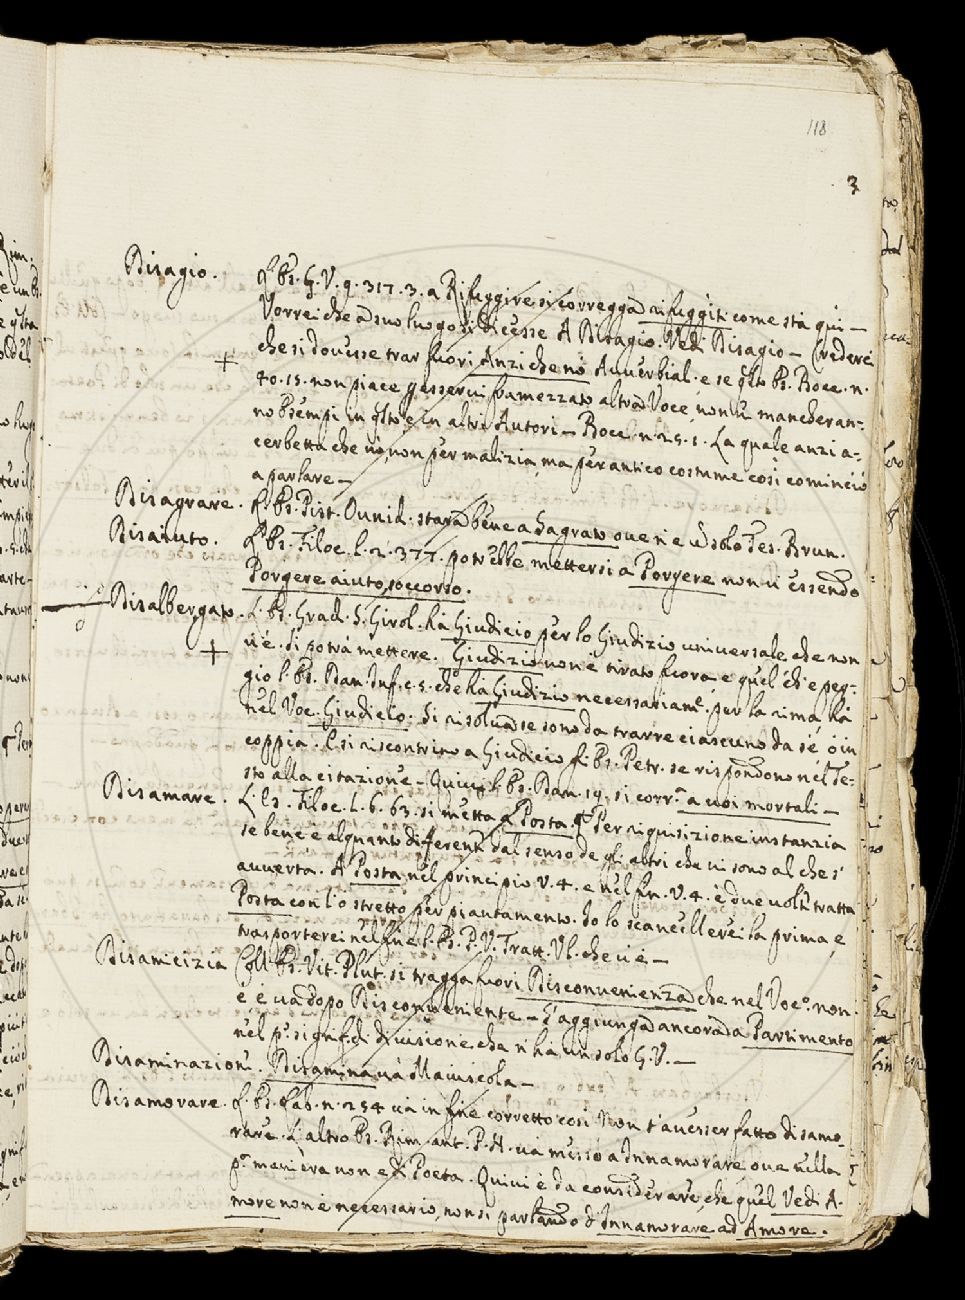 118
3
Disagio. l'Es. G. V. 9. 317. 3. a Rifuggire si corregga rifuggiti come sta qui —
Vorrei che a suo luogo si dicesse A Disagio. Vedi Disagio — Crederei
che si dovesse trar fuori Anzi che nò Avverbial. e se qsto Es. Bocc. n.
40. 15. non piace per esservi framezzato altra Voce, non vi mancheran-
no Esempi in qsto e in altri Autori — Bocc. n. 25. 1. La quale anzi a-
cerbetta che nò, non per malizia, ma per antico costume così cominciò
a parlare —
Disagrare. l'Es. Pist. Ovvid. starà bene a Sagrato ove n'è un solo Tes. Brun.
Disaiuto. l'Es. Filoc. l. 2. 377. potrebbe mettersi a Porgere non vi essendo
Porgere aiuto, soccorso.
Disalbergato. L'Es. Grad. S. Girol. ha Giudicio per lo Giudizio universale che non
v'è. Si potrà mettere. Giudizio non è tirato fuora e quel ch'è peg-
gio l'Es. Dan. Inf. c. 5. che ha Giudizio necessariamte. per la rima, ha
nel Voc. Giudicio. Si risolva se sono da trarre ciascuno da sé, ò in
coppia. E si riscontrino a Giudicio gl'Es. Petr. se rispondono nel Te-
sto alla citazione — Quivi l'Es. Dan. 19. si corr. a voi mortali —
Disamare. L'Es. Filoc. l. 6. 63. si metta a Posta Per riquisizione instanzia
se bene è alquanto differente dal senso de gli altri che vi sono al che s'
avverta. A Posta nel principio v. 4. e nel fin. v. 4. è due volte tratta
Posta con l'o stretto per piantamento. Io lo scancellerei la prima, e
trasporterei nel fine l'Es. P. V. Tratt. Vl. che vi è —
Disamicizia Coll'Es. Vit. Plut. si tragga fuori Disconvenienza che nel Voco. non
c'è e và dopo Disconveniente — S'aggiunga ancora a Partimento
nel po. signif. di divisione che n'ha un solo G. V. —
Disaminazioni. Disamina và Maiuscola —
Disamorare. l'Es. Fab. n. 254 và in fine corretto così Non t'avesser fatto disamo-
rare. L'altro Es. Rim. ant. P. N. và messo a Innamorare ove nella
pa. maniera non è di Poeta. Quivi è da considerare, che quel Vedi A-
more non è necessario, non si parlando d'Innamorare ad Amore.